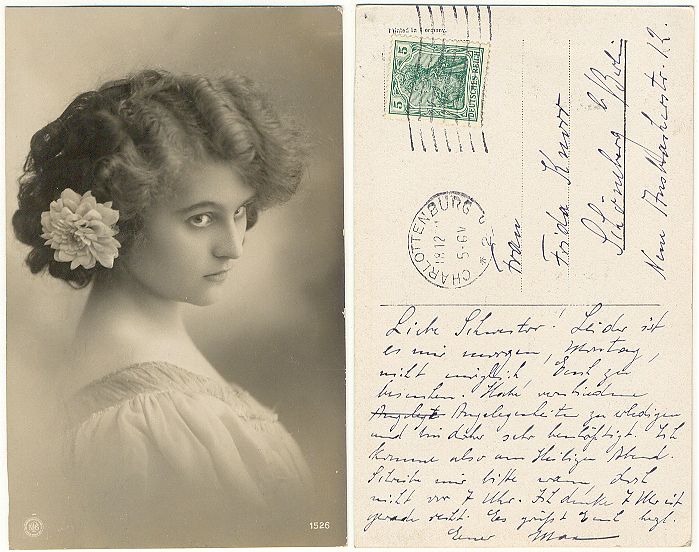 1526
Printed in Germany.
5 DEUTSCHES REICH 5
CHARLOTTENBURG 2
18.12
5-6 V
* 2
Frau
Frida Knorr
Schöneberg b/ Berlin
Neue Ansbacherstr. 12.
Liebe Schwester! Leider ist
es mir morgen, Montag,
nicht möglich Euch zu
besuchen. Habe verschiedene
Angelegenheiten zu erledigen
und bin daher sehr beschäftigt. Ich
komme also am Heiligen Abend.
Schreibe mir bitte wann, doch
nicht vor 7 Uhr. Ich denke 7 Uhr ist
gerade recht. Es grüßt Euch herzl.
Euer Max